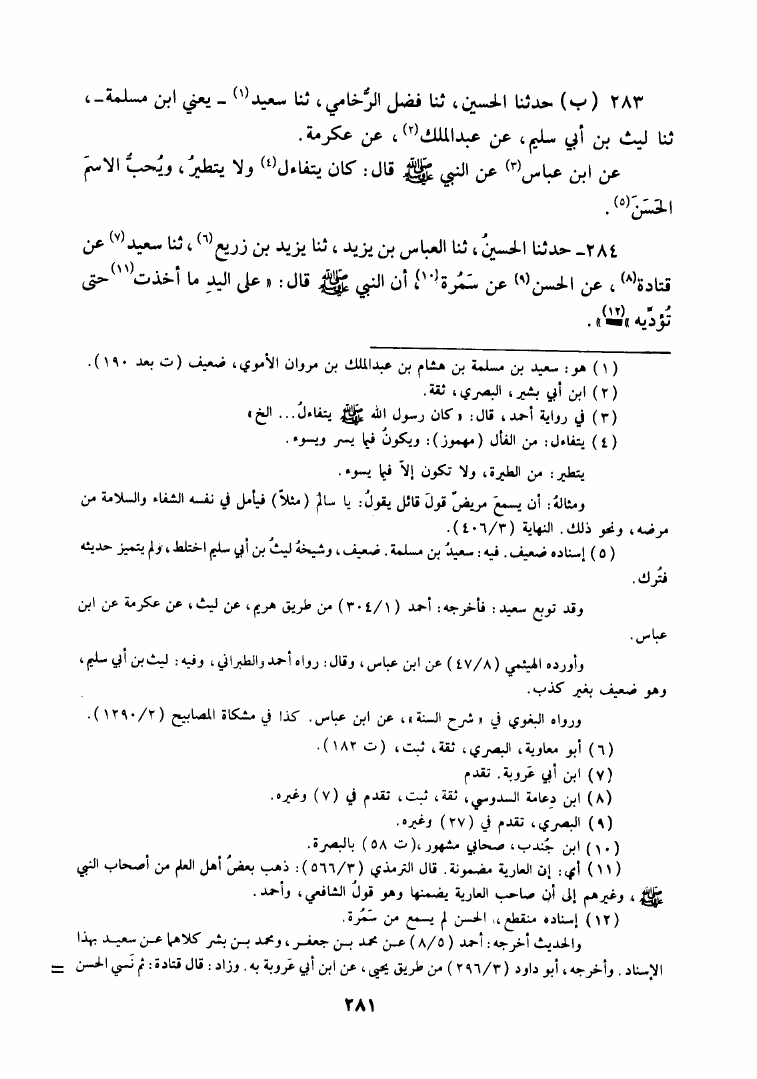 ٢٨٣ (ب) حدثنا الحسين، ثنا فضل الرُّخامي، ثنا سعيد(١) ـ يعني ابن مسلمة ـ،
ثنا ليث بن أبي سليم، عن عبدالملك(٢)، عن عكرمة.
عن ابن عباس(٣) عن النبي ﷺ قال: كان يتفاءل(٤) ولا يتطيرُ، ويُحبُّ الاسمَ
الحَسَنَ(٥).
٢٨٤ـ حدثنا الحسينُ، ثنا العباس بن يزيد، ثنا يزيد بن زريع(٦)، ثنا سعيد(٧) عن
قتادة(٨)، عن الحسن(٩) عن سَمُرة(١٠)، أن النبي ﷺ قال: «على اليدِ ما أخذت(١١) حتى
تُؤدِّيه»(١٢)».
(١) هو: سعيد بن مسلمة بن هشام بن عبدالملك بن مروان الأموي، ضعيف (ت بعد ١٩٠).
(٢) ابن أبي بشير، البصري، ثقة.
(٣) في رواية أحمد، قال: «كان رسول الله ﷺ يتفاءلُ... الخ»
(٤) يتفاءل: من الفأل (مهموز): ويكونُ فيما يسر ويسوء.
يتطير: من الطيرة، ولا تكون إلاّ فيما يسوء.
ومثالهُ: أن يسمعَ مريضٌ قولَ قائل يقولُ: يا سالمُ (مثلاً) فيأمل في نفسه الشفاء والسلامة من
مرضه، ونحو ذلك. النهاية (٤٠٦/٣).
(٥) إسناده ضعيف. فيه: سعيدُ بن مسلمة. ضعيف، وشيخهُ ليثُ بن أبي سليم اختلط، ولم يتميز حديثه
فتُرك.
وقد توبع سعيد: فأخرجه: أحمد (٣٠٤/١) من طريق هريم، عن ليث، عن عكرمة عن ابن
عباس.
وأورده الهيثمي (٤٧/٨) عن ابن عباس، وقال: رواه أحمد والطبراني، وفيه: ليث بن أبي سليم،
وهو ضعيف بغير كذب.
ورواه البغوي في «شرح السنة»، عن ابن عباس. كذا في مشكاة المصابيح (١٢٩٠/٢).
(٦) أبو معاوية، البصري، ثقة، ثبت، (ت ١٨٢).
(٧) ابن أبي عَروبة. تقدم
(٨) ابن دِعامة السدوسي، ثقة، ثبت، تقدم في (٧) وغيره.
(٩) البصري، تقدم في (٢٧) وغيره.
(١٠) ابن جُندب، صحابي مشهور، (ت ٥٨) بالبصرة.
(١١) أي: إن العارية مضمونة. قال الترمذي (٥٦٦/٣): ذهب بعضُ أهل العلم من أصحاب النبي
ﷺ، وغيرهم إلى أن صاحب العارية يضمنها وهو قولُ الشافعي، وأحمد.
(١٢) إسناده منقطع، الحسن لم يسمع من سَمُرة.
والحديث أخرجه: أحمد (٨/٥) عن محمد بن جعفر، ومحمد بن بشر كلاهما عن سعيد بهذا
الإسناد. وأخرجه، أبو داود (٢٩٦/٣) من طريق يحيى، عن ابن أبي عَروبة به. وزاد: قال قتادة: ثم نَسي الحسن =
٢٨١